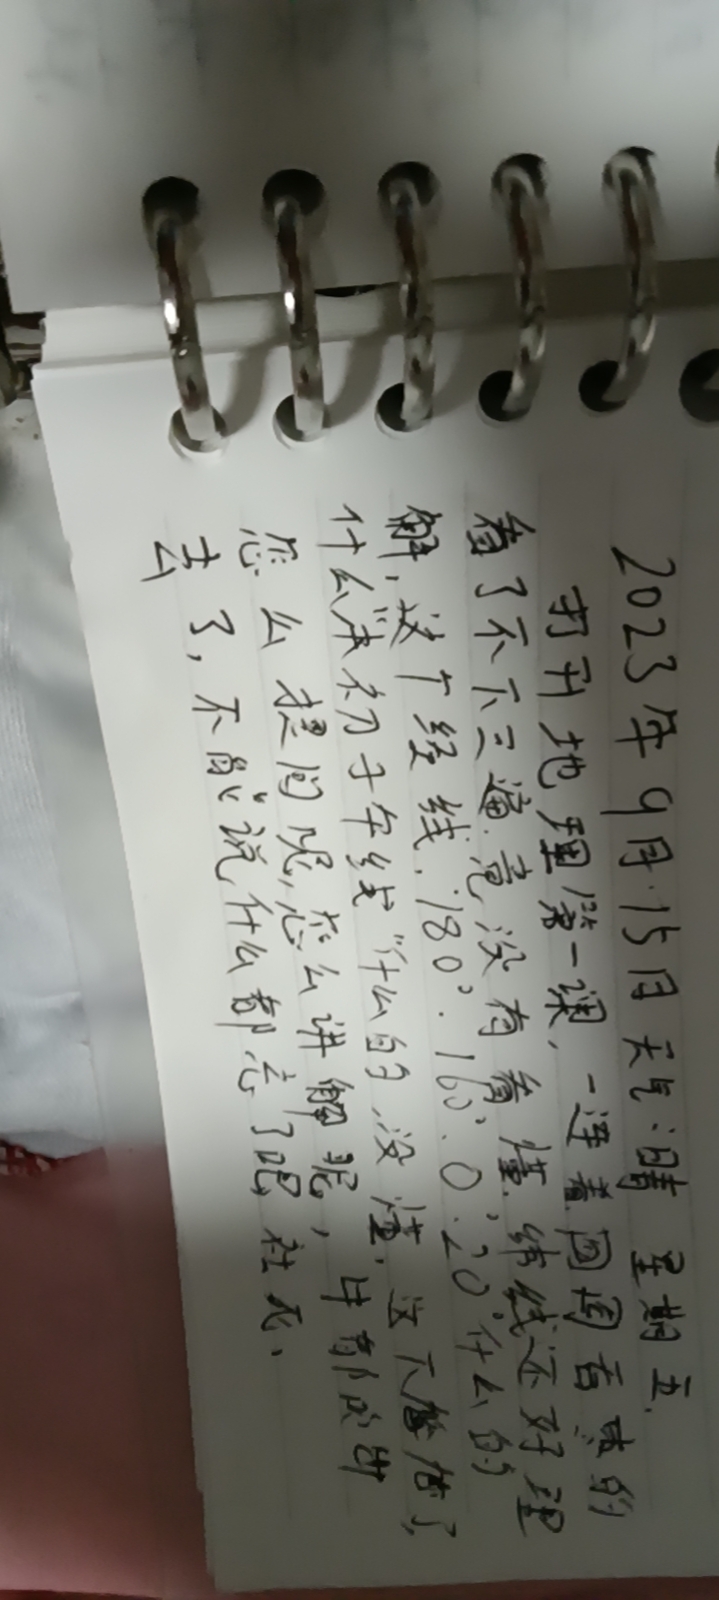 2023年9月15日 天气:晴 星期五.
打开地理第一课,一连着囫囵吞枣的
看了不下三遍.竟没有看懂.纬线还好理
解,这个经线.180°.160°.0°.20°什么的
什么"本初子午线"什么的.没懂.这下尴尬了,
怎么提问呢,怎么讲解呢,牛都吹出
去了,不能说什么都忘了吧,社死.